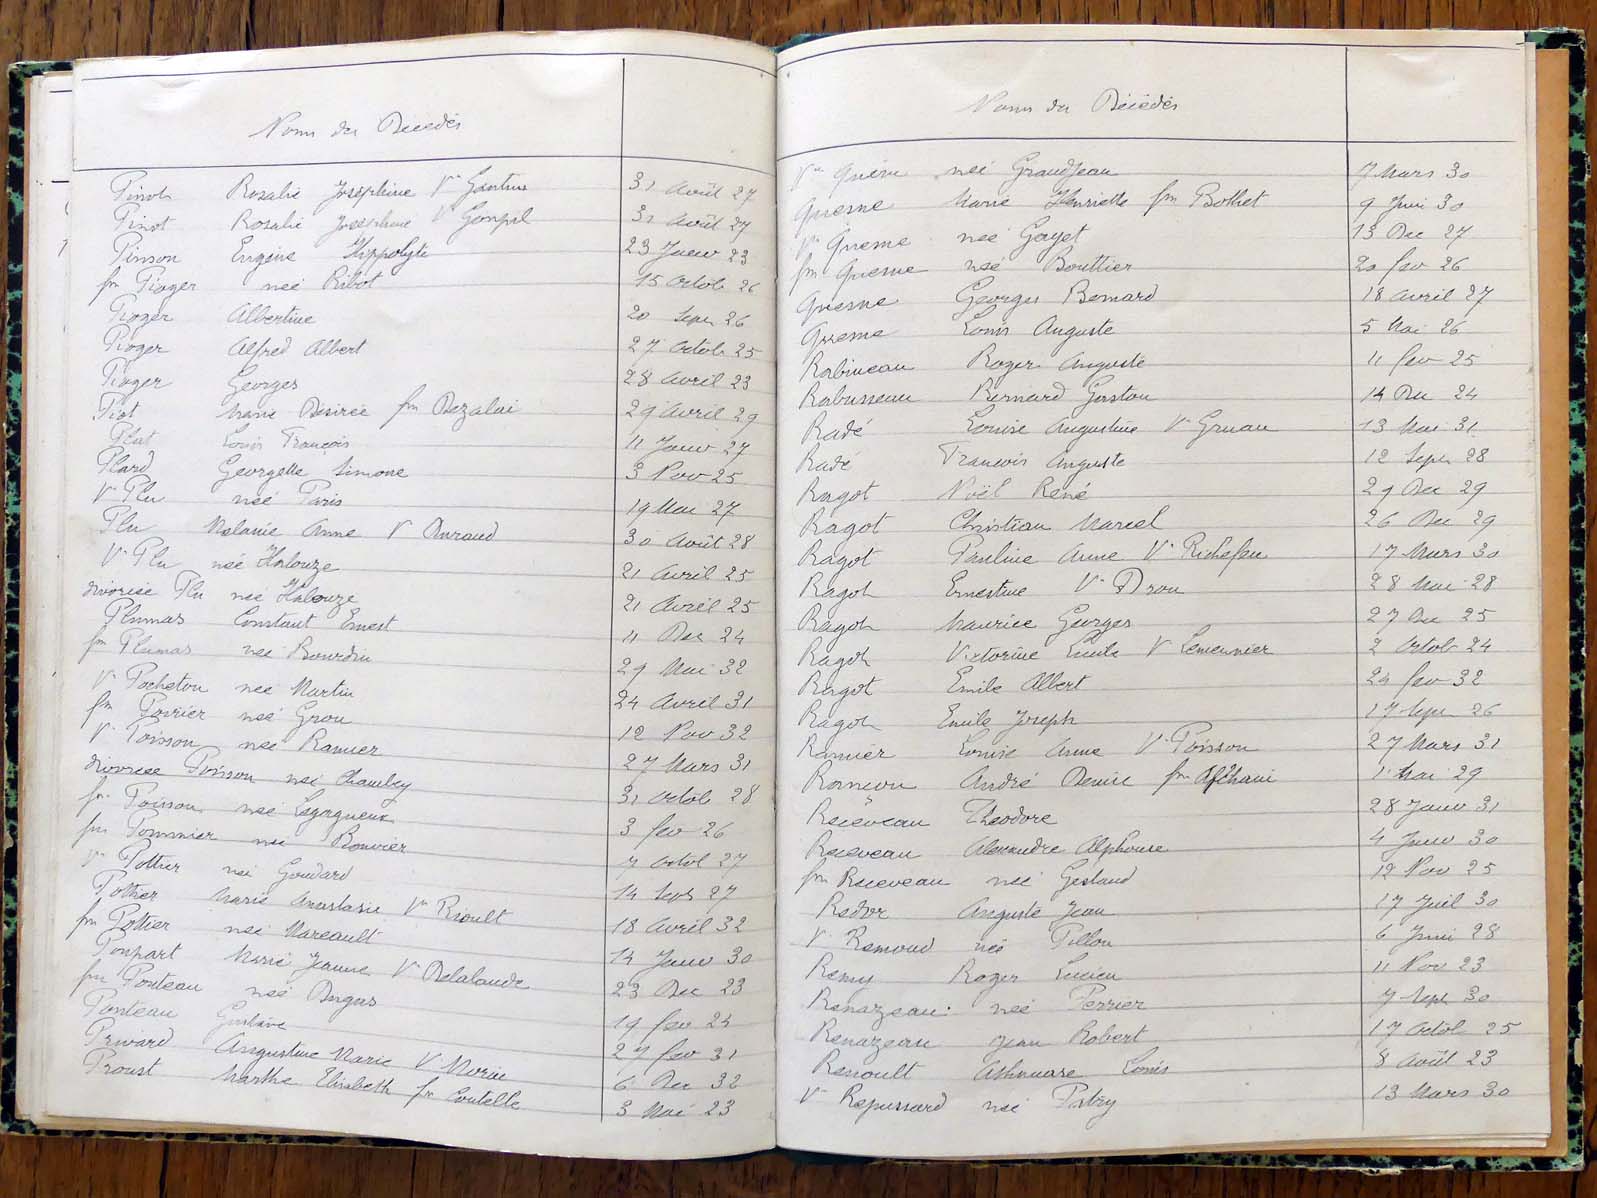 Noms des Décédés
Pinot Rosalie Joséphine Vve 31 Août 27
Pinot Rosalie Joséphine Vve Gonpil 31 Août 27
Pinson Eugène Hippolyte 23 Janv 23
fm Pioger née Ribot 15 Octob 26
Pioger Albertine 20 Sept 26
Pioger Alfred Albert 27 Octob 25
Pioger Georges 28 Avril 23
Piot Marie Désirée fm Dezalai 29 Avril 29
Plat Louis François 11 Janv 27
Plard Georgette Simone 3 Nov 25
Vve Plu née Paris 19 Mai 27
Plu Mélanie Anne Vve Durand 30 Août 28
Vve Plu née Halouze 21 Avril 25
divorcée Plu née Halouze 21 Avril 25
Plumas Constant Ernest 11 Dec 24
fm Plumas née Bourdin 29 Mai 32
Vve Pocheton née Martin 24 Avril 31
fm Poirier née Grou 12 Nov 32
Vve Poisson née Ramier 27 Mars 31
divorcée Poisson née Chambey 31 Octob 28
fm Poisson née 3 fev 26
fm Pommier née Bouvier 7 Octob 27
Vve Pottier née Goudard 14 Sept 27
Pottier Marie Anastasie Vve Rioult 18 Avril 32
fm Pottier née Mareault 14 Janv 30
Poupart Marie Jeanne Vve Delalande 23 Dec 23
fm Pouteau née Dugas 19 fev 24
Pouteau Gustave 27 fev 31
Privard Augustine Marie Vve Morin 6 Dec 32
Proust Marthe Elisabeth fm Coutelle 3 Mai 23
Noms des Décédés
Vve née Grandjean 7 Mars 30
Quesne Marie Henriette fm Bothet 9 Juin 30
Vve Quesne née Goyet 13 Dec 27
fm Quesne née Bouttier 20 fev 26
Quesne Georges Bernard 18 Avril 27
Quesne Louis Auguste 5 Mai 26
Rabineau Roger Auguste 11 fev 25
Rabusseau Bernard Gaston 14 Dec 24
Radé Louise Augustine Vve Gruau 13 Mai 31
Radé Francois Auguste 12 Sept 28
Ragot Noël René 29 Dec 29
Ragot Christian Marcel 26 Dec 29
Ragot Pauline Anne Vve Richefeu 17 Mars 30
Ragot Ernestine Vve Drou 28 Mai 28
Ragot Maurice Georges 27 Dec 25
Ragot Victorine Emile Vve Lemeunier 2 Octob 24
Ragot Emile Albert 24 fev 32
Ragot Emile Joseph 17 Sept 26
Ramier Louise Anne Vve Poisson 27 Mars 31
Rançon André Denise fm 1 Mai 29
Receveau Théodore 28 Janv 31
Receveau Alexandre Alphonse 4 Janv 30
fm Receveau née Gesland 12 Nov 25
Redor Auguste Jean 17 Juil 30
Vve Remond née Pillon 6 Juin 28
Remy Roger Lucien 11 Nov 23
Renazeau née Perrier 7 Sept 30
Renazeau Jean Robert 17 Octob 25
Renoult Athanase Louis 8 Août 23
Vve Repussard née Patry 13 Mars 30